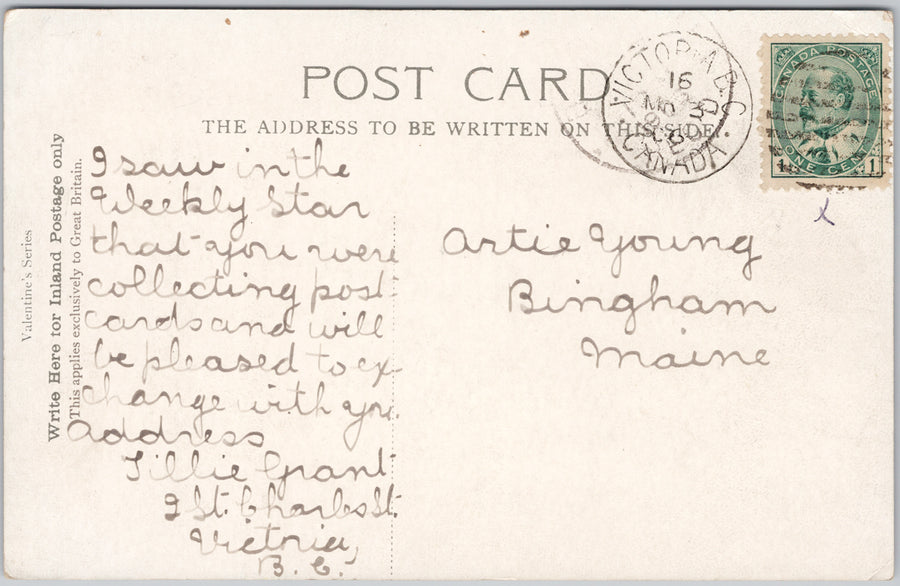 POST CARD
THE ADDRESS TO BE WRITTEN ON THIS SIDE.
VICTORIA B.C.
16
CANADA
CANADA POSTAGE
1 ONE CENT 1
Valentine's Series
Write Here for Inland Postage only
This applies exclusively to Great Britain.
I saw in the
Weekly Star
that you were
collecting post-
cards and will
be pleased to ex-
change with you.
Address
Tillie Grant
St. Charles St.
Victoria,
B. C.
Artie Young
Bingham
Maine
x